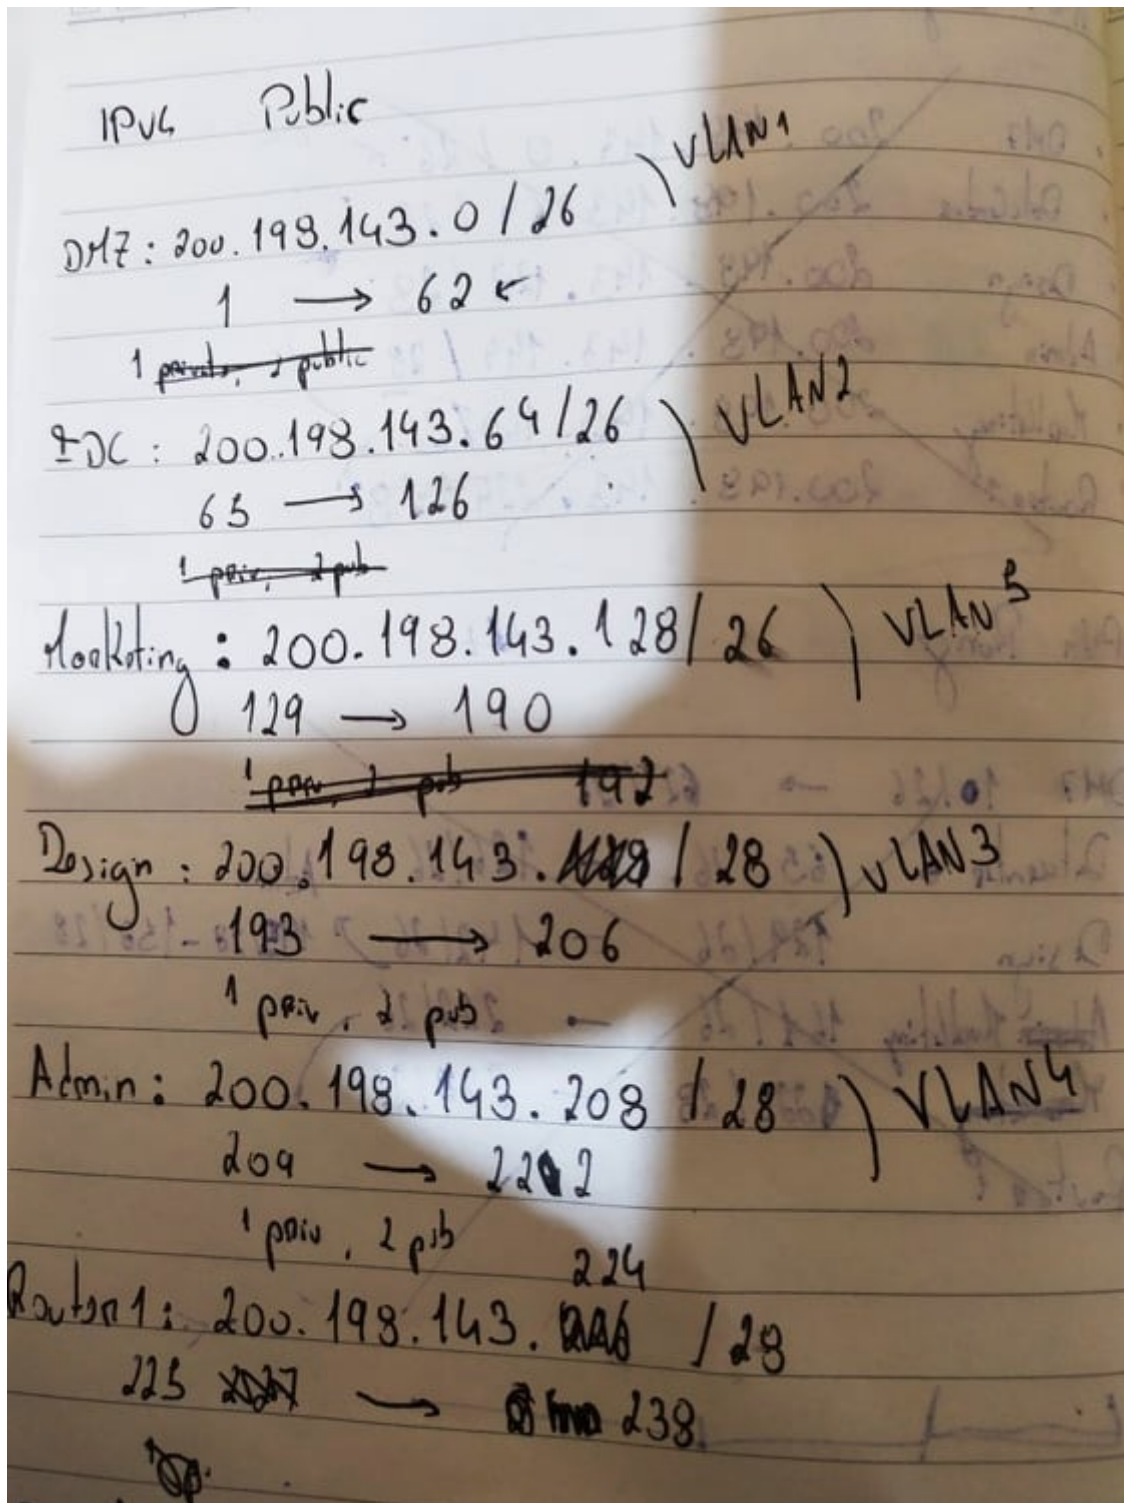 IPv4 Public
DMZ: 200.198.143.0/26 \ VLAN1
1 → 62 ←
1 private, 2 public
IDC: 200.198.143.64/26 \ VLAN2
65 → 126
1 priv, 2 pub
Marketing: 200.198.143.128/26 ) VLAN5
129 → 190
1 priv, 2 pub 192
Design: 200.198.143. /28 ) VLAN3
193 → 206
1 priv, 2 pub
Admin: 200.198.143.208 /28 ) VLAN4
209 → 222
1 priv, 2 pub
224
Router1: 200.198.143. /28
225 → 238